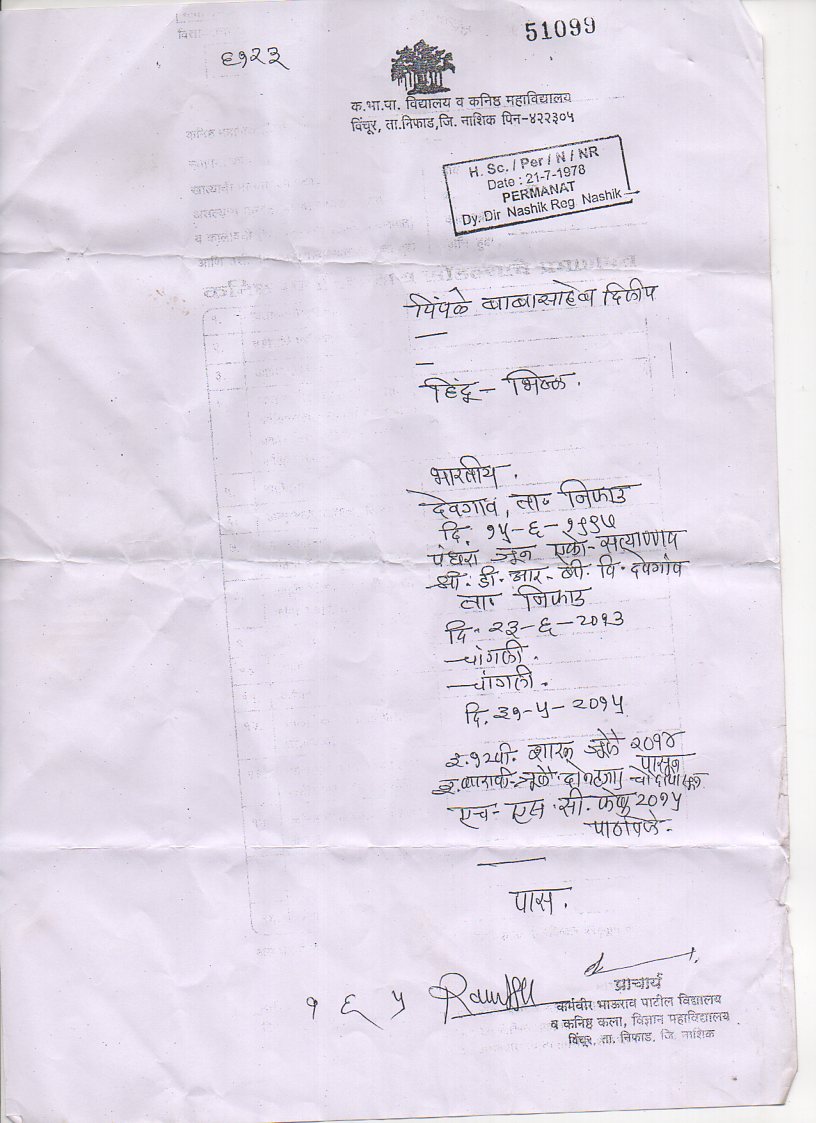 51099
६१२३
क.भा.पा. विद्यालय व कनिष्ठ महाविद्यालय
विंचूर, ता.निफाड,जि. नाशिक पिन-४२२३०५
H. Sc. / Per / N / NR
Date : 21-7-1978
PERMANAT
Dy. Dir Nashik Reg Nashik
पिंपळे बाबासाहेब दिलीप
—
—
हिंदू - भिल्ल.
भारतीय.
देवगाव, ता. निफाड
दि. १५-६-१९९७
पंधरा जून एको- सत्याण्णव
श्री. डी. आर. वि. देवगाव
ता. निफाड
दि. २३-६-२०१३
चांगली.
चांगली.
दि. ३१-५-२०१५
इ. १२वी. शास्त्र जूलै २०१४
पासून
एच. एस. सी. फेब्रु २०१५
—
पास.
१ ६ ५
प्राचार्य
कर्मवीर भाऊराव पाटील विद्यालय
व कनिष्ठ कला, विज्ञान महाविद्यालय
विंचूर, ता. निफाड. जि. नाशिक